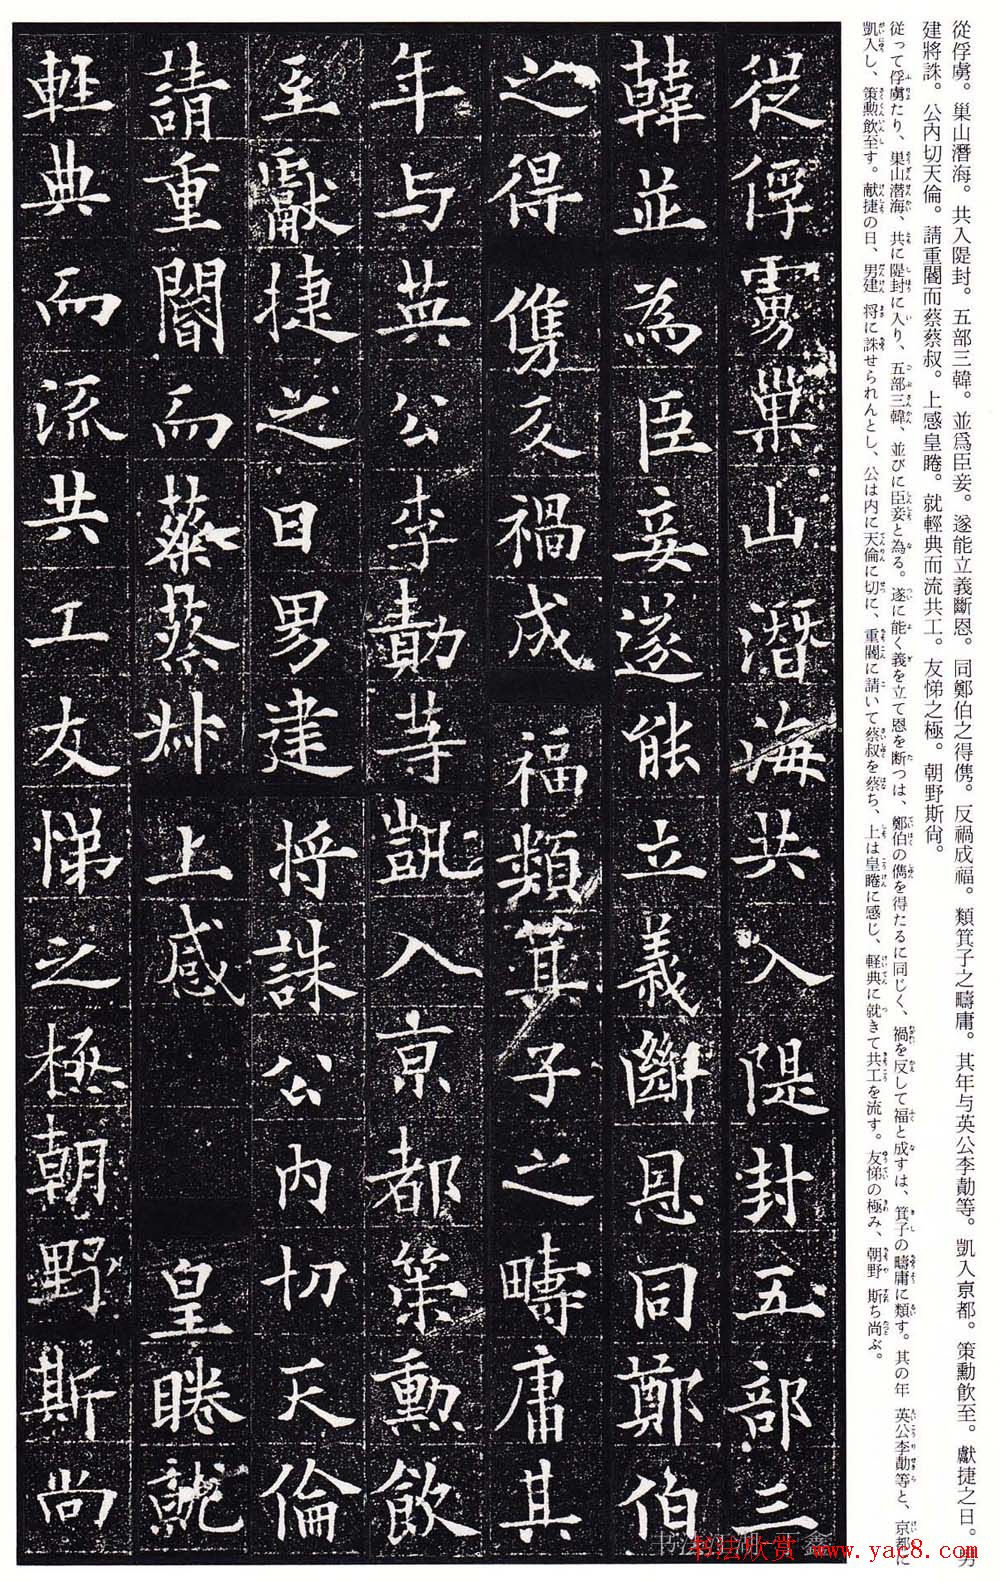 從俘虜。巢山潛海。共入隄封。五部三韓。並爲臣妾。遂能立義斷恩。同鄭伯之得儁。反禍成福。類箕子之疇庸。其年与英公李勣等。凱入京都。策勳飮至。獻捷之日。男
建將誅。公內切天倫。請重閽而蔡蔡叔。上感皇睠。就輕典而流共工。友悌之極。朝野斯尙。
従って俘虜たり、巣山潜海、共に隄封に入り、五部三韓、並びに臣妾と為る。遂に能く義を立て恩を断つは、鄭伯の儁を得たるに同じく、禍を反して福と成すは、箕子の疇庸に類す。其の年 英公李勣等と、京都に
凱入し、策勲飲至す。献捷の日、男建 将に誅せられんとし、公は内に天倫に切に、重閽に請いて蔡叔を蔡ち、上は皇睠に感じ、軽典に就きて共工を流す。友悌の極み、朝野 斯ち尚ぶ。
從俘虜巢山潛海共入隄封五部三
韓並為臣妾遂能立義斷恩同鄭伯
之得儁反禍成福類箕子之疇庸其
年与英公李勣等凱入京都策勳飲
至獻捷之日男建將誅公內切天倫
請重閽而蔡蔡叔上感皇睠就
輕典而流共工友悌之極朝野斯尚
书法欣赏 www.yac8.com